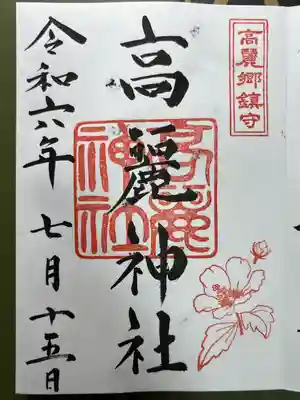 高麗郷鎮守
高麗神社
高麗神社
令和六年 七月十五日